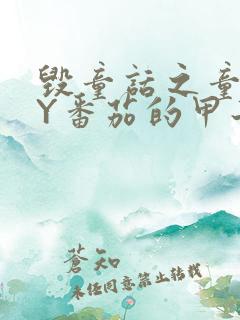 毁童话之童
Y番茄的甲
蒼知
未经同意禁止转载